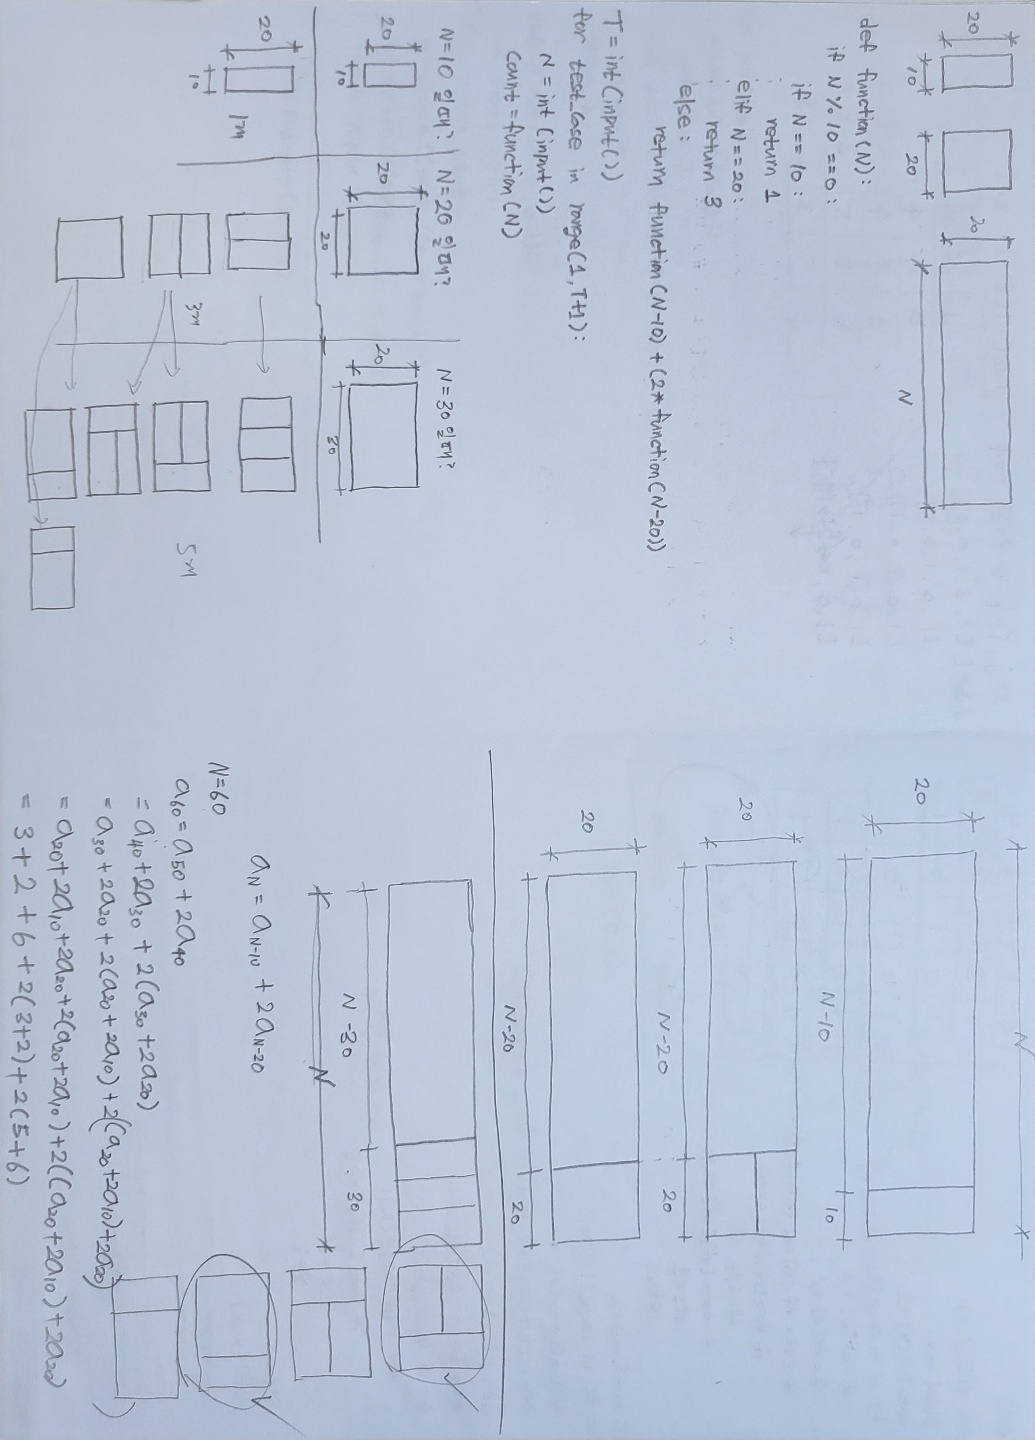 20
10
20
20
N
def function(N):
if N % 10 ==0:
if N == 10:
return 1
elif N==20:
return 3
else:
return function(N-10) + (2* function(N-20))
T = int(input())
for test_case in range(1, T+1):
N = int(input())
count = function(N)
N=10 일때?
N=20 일때?
N=30 일때?
20
10
20
20
20
30
20
10
1개
3개
5개
N
20
N-10
10
20
N-20
20
20
N-20
20
N-30
30
N
a_N = a_N-10 + 2a_N-20
N=60
a60 = a50 + 2a40
= a40 + 2a30 + 2(a30 + 2a20)
= a30 + 2a20 + 2(a20 + 2a10) + 2((a20+2a10)+2a20)
= a20 + 2a10 + 2a20 + 2(a20+2a10) + 2((a20+2a10) + 2a20)
= 3 + 2 + 6 + 2(3+2) + 2(5+6)